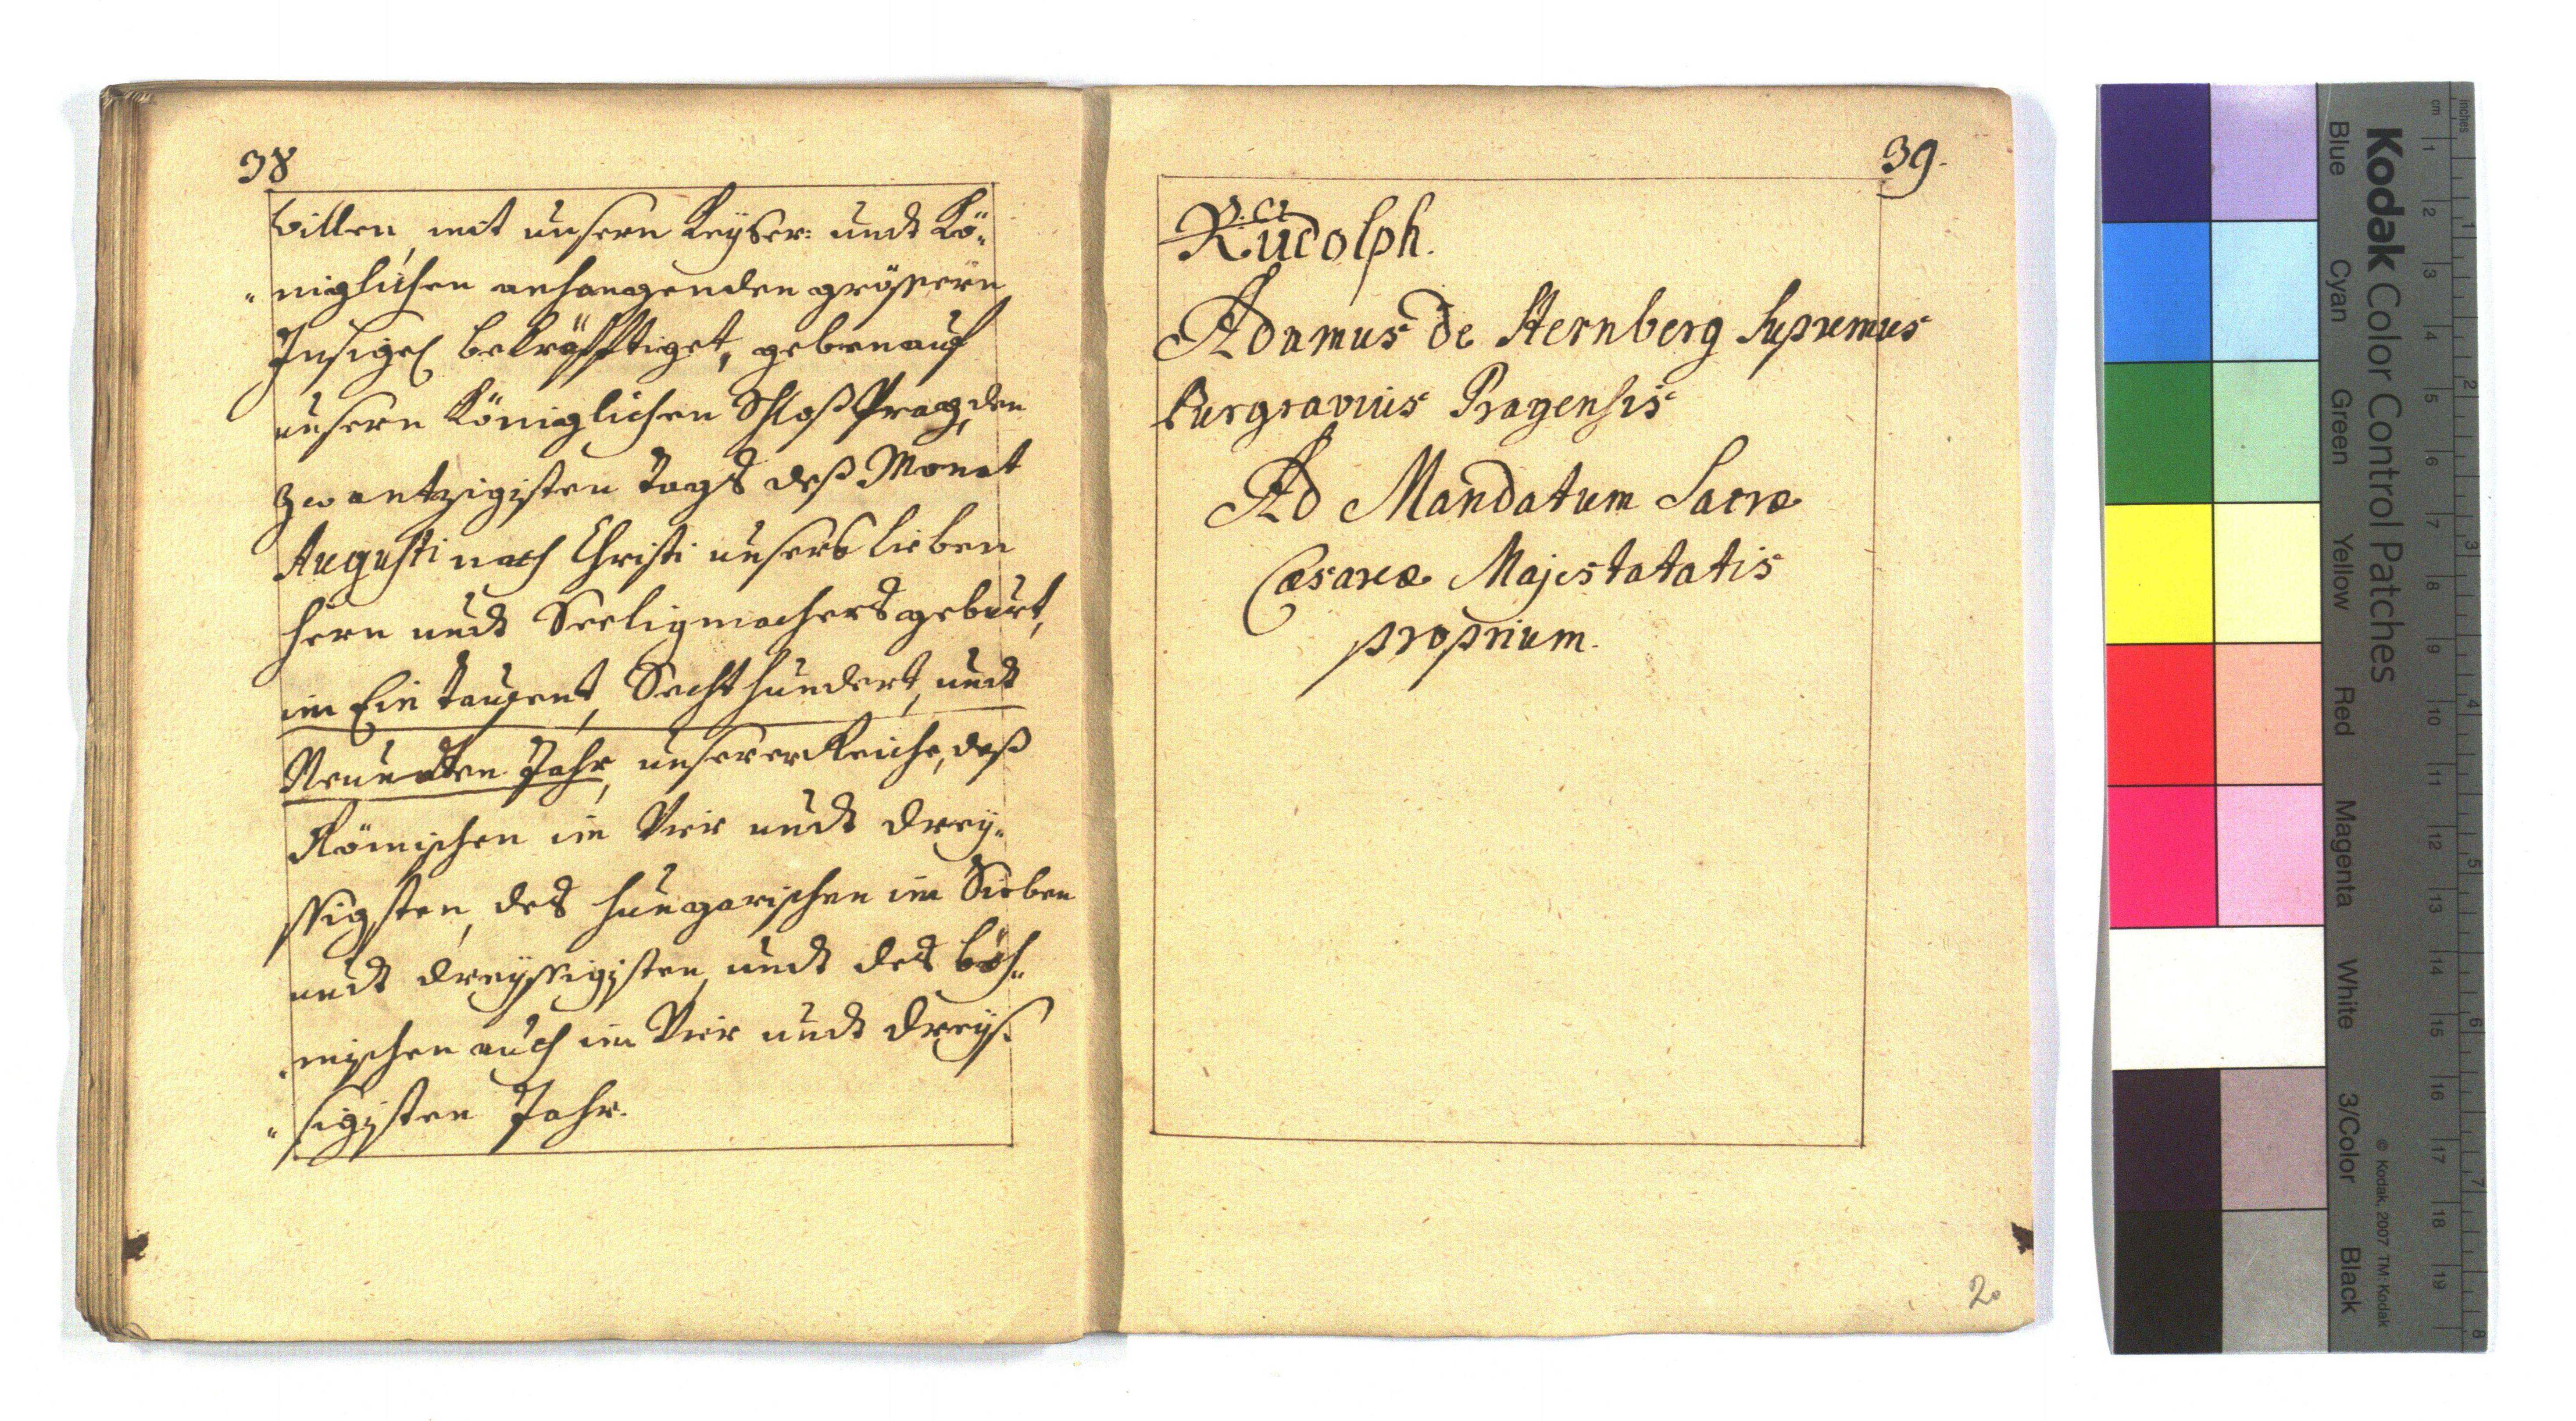 38
willen, mit unsern Keÿser: undt Kö„
„niglichen anhangenden grössern
Insigel bekräfftiget, geben auf
unsern Königlichen Schloß Prag, den
zwantzigisten Tags deß Monat
Augusti nach Christi unsers lieben
Hern undt Seeligmachers geburt,
im Ein tausent, Sechshundert, undt
Neundten Jahr, unserer Reiche, deß
Römischen im Vier undt dreÿ„
ssigsten, des Hungarischen im Sieben
undt dreÿssigisten, undt des böh„
„mischen auch im Vier undt dreÿs„
„sigisten Jahr.
39.
Rudolph.
Adamus de Sternberg Supremus
Purgravius Pragensis
Ad Mandatum Sacræ
Cæsareæ Majestatatis
proprium.
20
Kodak Color Control Patches
Blue Cyan Green Yellow Red Magenta White 3/Color Black
© Kodak, 2007 TM: Kodak
inches 1 2 3 4 5 6 7 8
cm 1 2 3 4 5 6 7 8 9 10 11 12 13 14 15 16 17 18 19